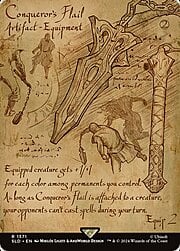 Conqueror's Flail
2
Artifact - Equipment
Equipped creature gets +1/+1
for each color among permanents you control.
As long as Conqueror's Flail is attached to a creature,
your opponents can't cast spells during your turn.
Equip 2
R 1571
SLD • EN
© Ubisoft
™ & © 2024 Wizards of the Coast